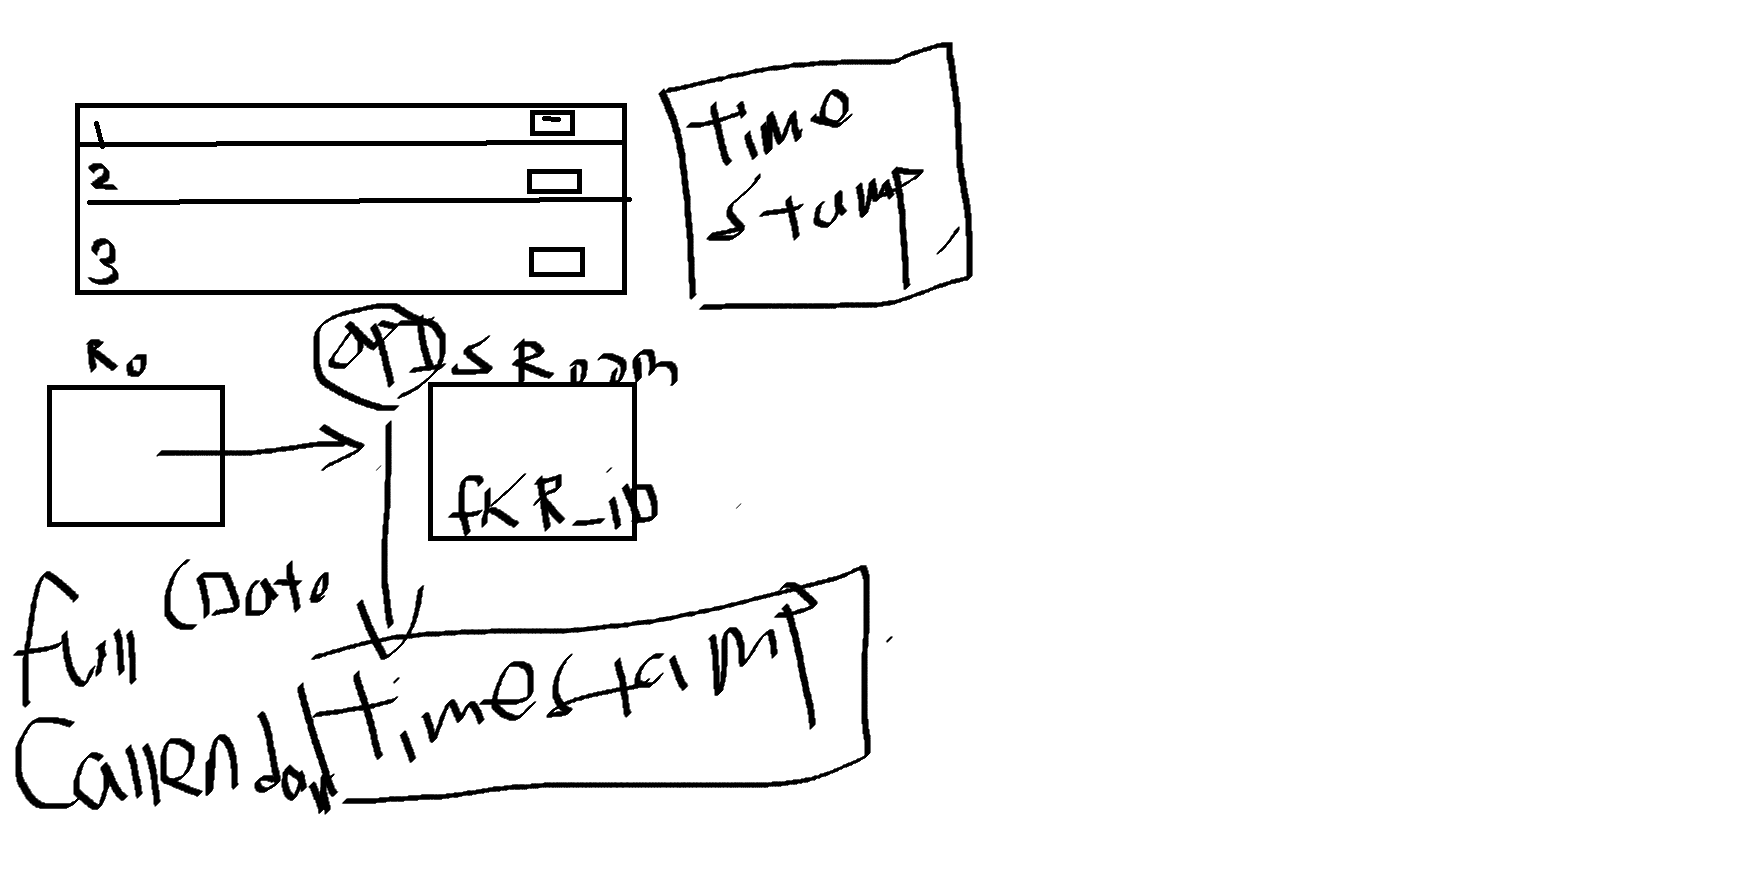 1
2
3
Time
stamp
Ro
s Room
fK R_iD
full
(Date
Callendar
timestamp